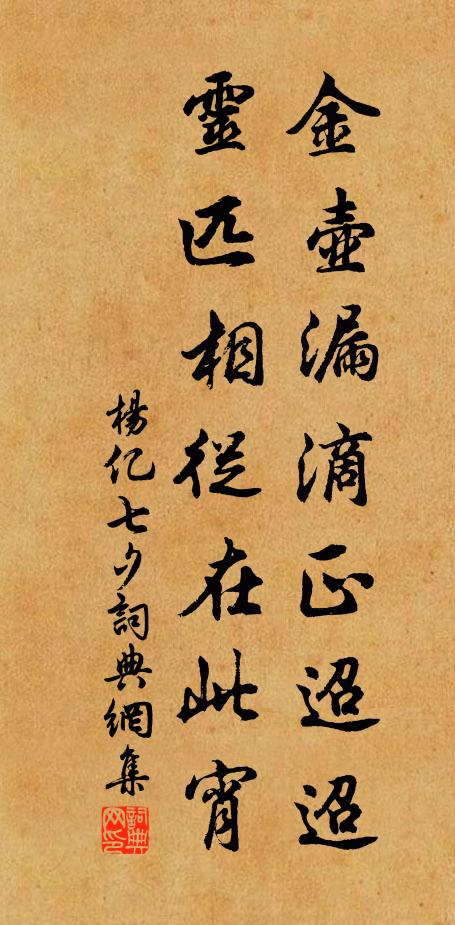 金壺漏滴正迢迢
靈匹相從在此宵
楊亿七夕詞典網集
詞典网印